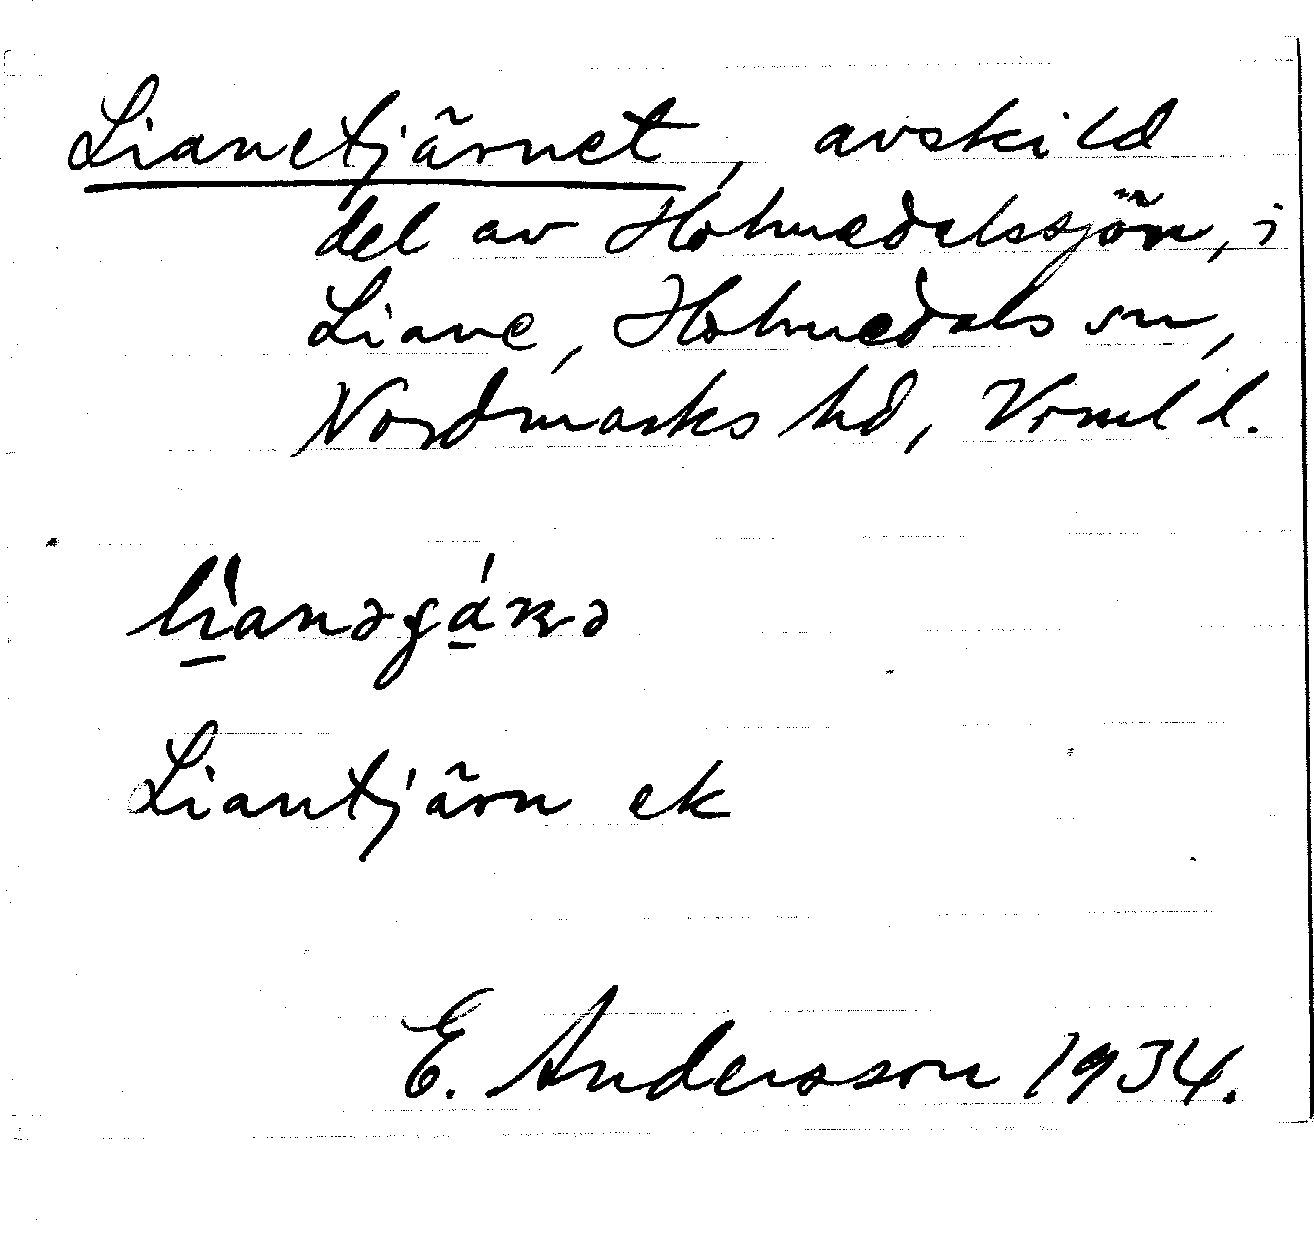 Lianetjärnet, avskild
del av Holmedalssjön, i
Liane, Holmedals sn,
Nordmarks hd, Vrml d.
Liantjärn ek
E. Andersson 1934.